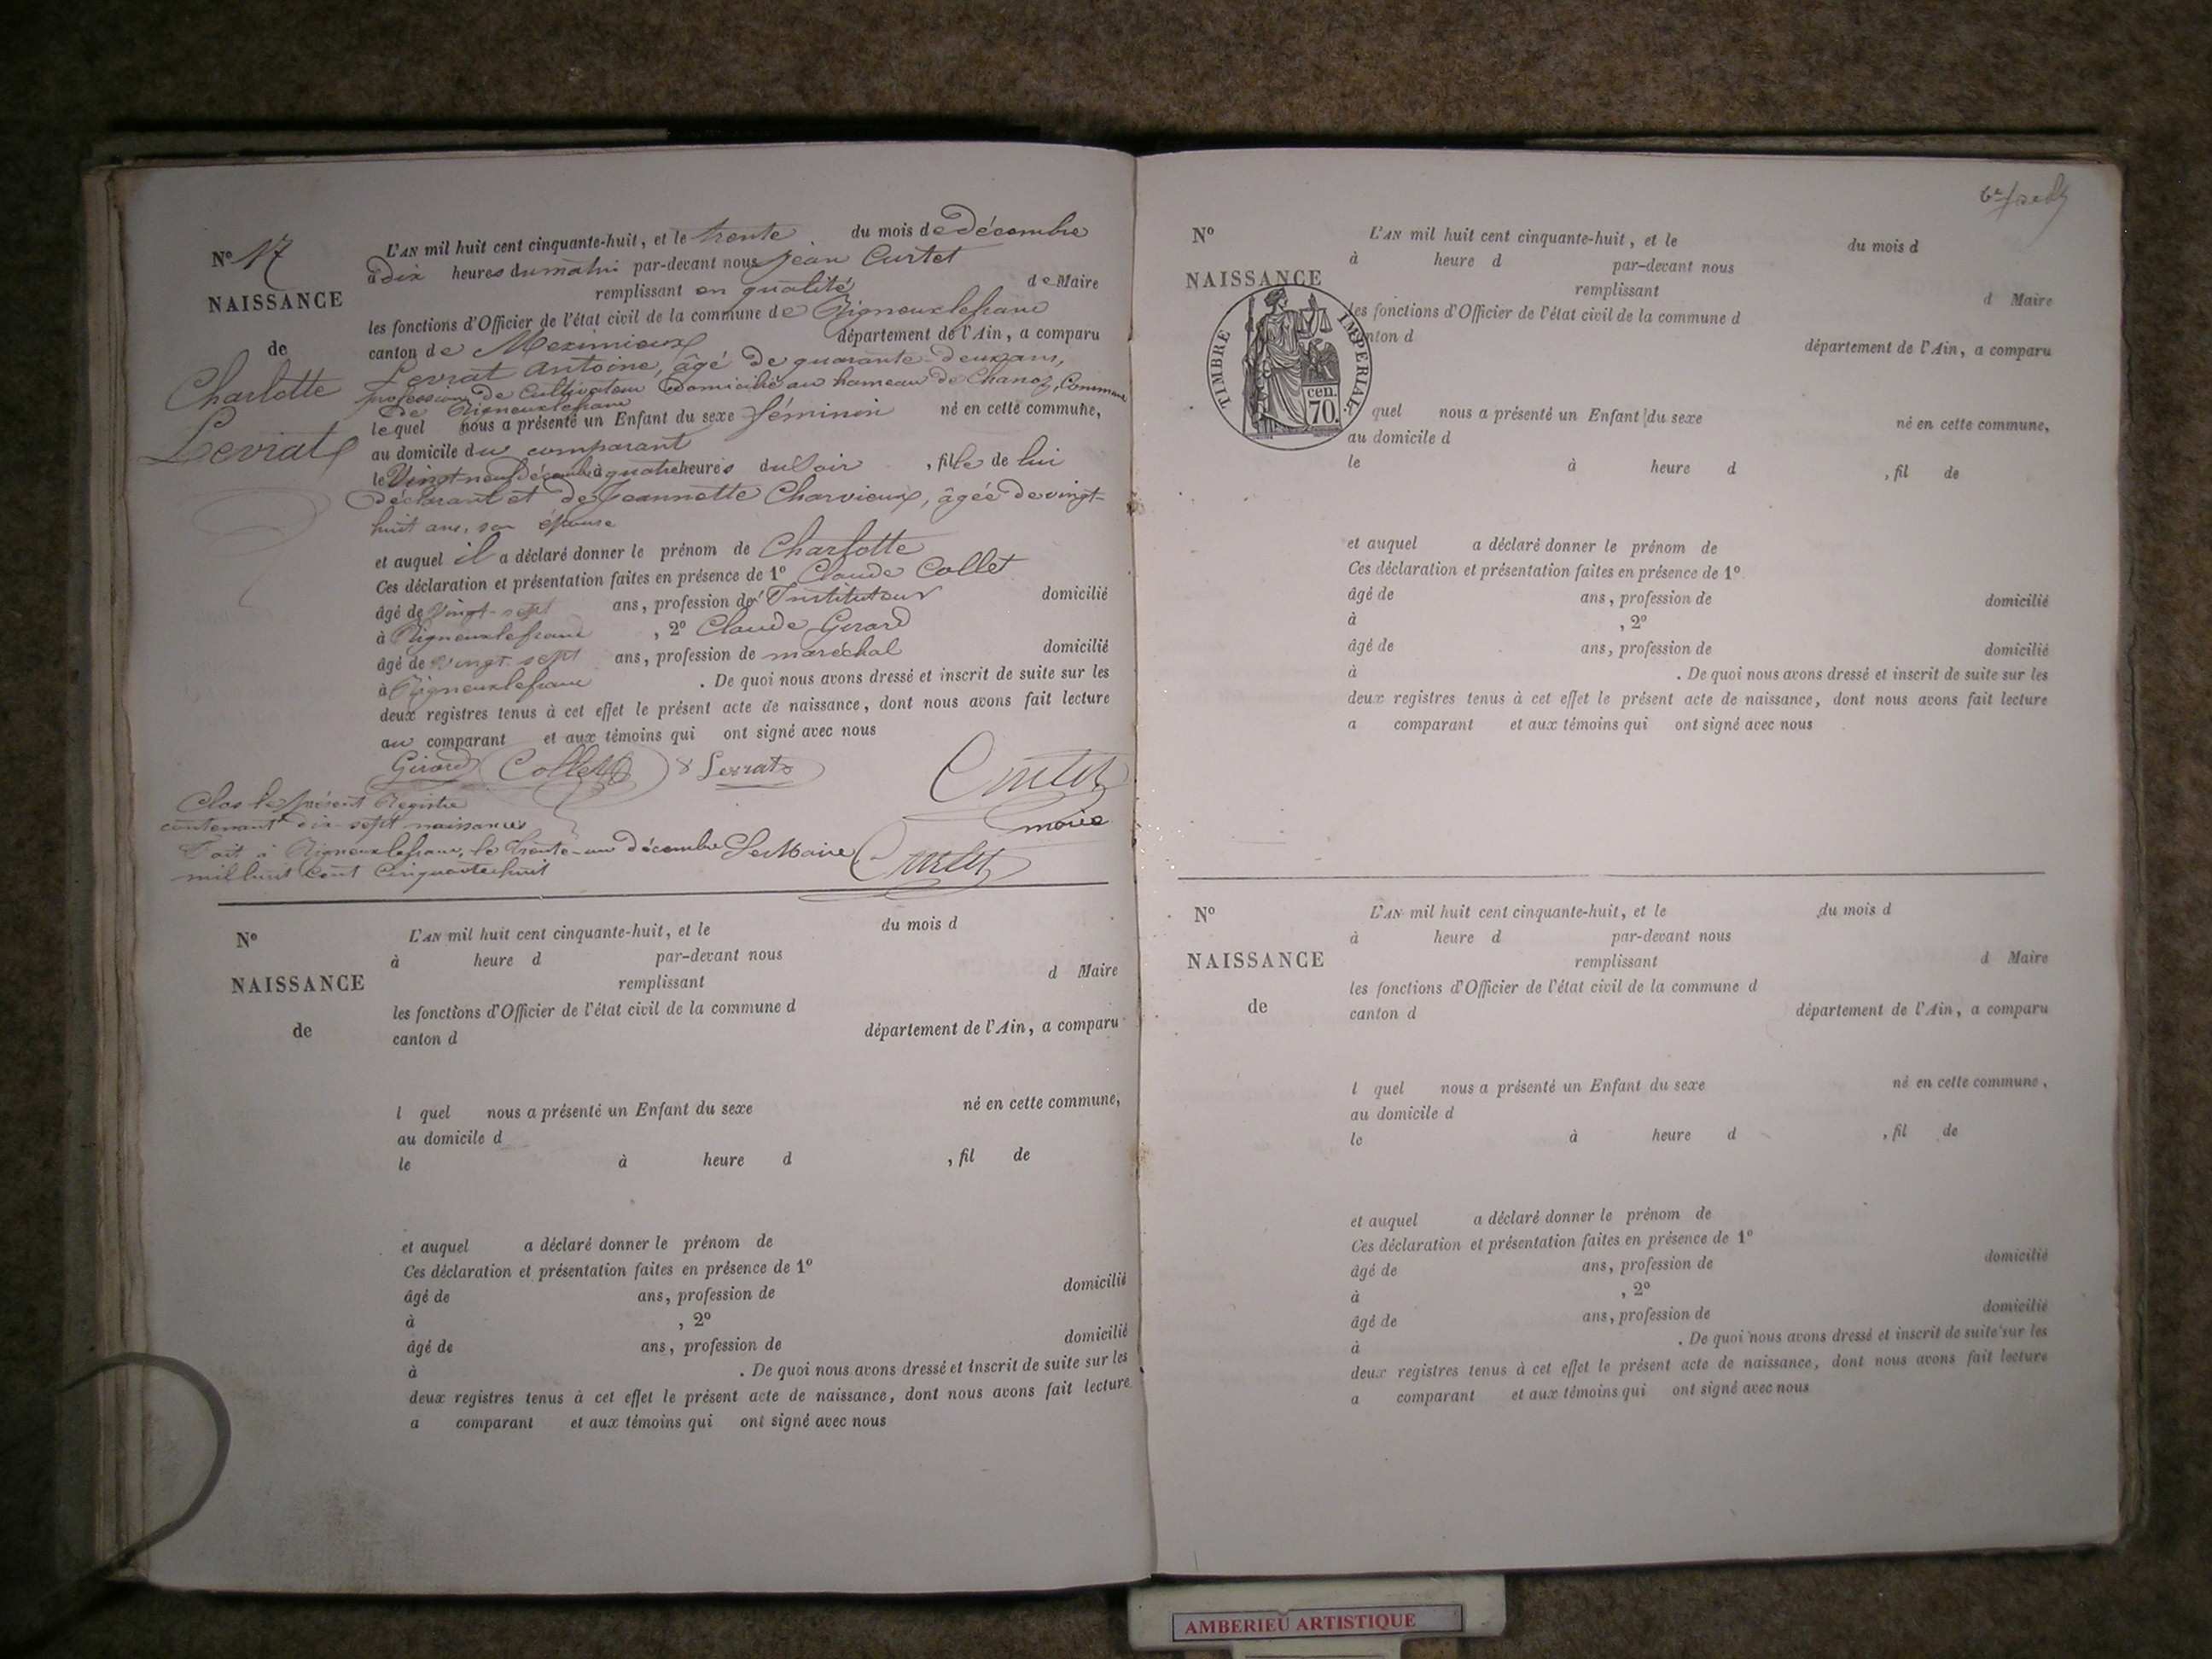 N° 17
NAISSANCE
de
Charlotte
Levrat
L'AN mil huit cent cinquante-huit, et le trente du mois de décembre
à dix heures du matin par-devant nous Jean Curtet
remplissant en qualité de Maire
les fonctions d'Officier de l'état civil de la commune de Rigneuxlefranc
canton de Meximieux département de l'Ain, a comparu
Levrat Antoine, âgé de quarante-deux ans,
profession de Cultivateur domicilié au hameau de Chanoz, Commune
de Rigneuxlefranc
lequel nous a présenté un Enfant du sexe féminin né en cette commune,
au domicile du comparant
le Vingt neuf décembre à quatre heures du Soir, fille de lui
déclarant et de Jeannette Charvieux, âgée de vingt-
huit ans, son épouse
et auquel il a déclaré donner le prénom de Charlotte
Ces déclaration et présentation faites en présence de 1° Claude Collet
âgé de Vingt-sept ans, profession d' Instituteur domicilié
à Rigneuxlefranc, 2° Claude Gerard
âgé de vingt-sept ans, profession de maréchal domicilié
à Rigneuxlefranc. De quoi nous avons dressé et inscrit de suite sur les
deux registres tenus à cet effet le présent acte de naissance, dont nous avons fait lecture
au comparant et aux témoins qui ont signé avec nous
Girard Collet Levrat Curtet
maire
Clos le présent Registre
contenant dix-sept naissances
Fait à Rigneuxlefranc, le trente-un décembre Le Maire Curtet
mil huit cent Cinquante huit
N°
NAISSANCE
de
L'AN mil huit cent cinquante-huit, et le du mois d
à heure d par-devant nous
remplissant d Maire
les fonctions d'Officier de l'état civil de la commune d
canton d département de l'Ain, a comparu
l quel nous a présenté un Enfant du sexe né en cette commune,
au domicile d
le à heure d , fil de
et auquel a déclaré donner le prénom de
Ces déclaration et présentation faites en présence de 1°
âgé de ans, profession de domicilié
à , 2°
âgé de ans, profession de domicilié
à . De quoi nous avons dressé et inscrit de suite sur les
deux registres tenus à cet effet le présent acte de naissance, dont nous avons fait lecture
a comparant et aux témoins qui ont signé avec nous
N°
NAISSANCE
TIMBRE IMPERIAL
cen.
70.
L'AN mil huit cent cinquante-huit, et le du mois d
à heure d par-devant nous
remplissant d Maire
les fonctions d'Officier de l'état civil de la commune d
nton d département de l'Ain, a comparu
quel nous a présenté un Enfant du sexe né en cette commune,
au domicile d
le à heure d , fil de
et auquel a déclaré donner le prénom de
Ces déclaration et présentation faites en présence de 1°
âgé de ans, profession de domicilié
à , 2°
âgé de ans, profession de domicilié
à . De quoi nous avons dressé et inscrit de suite sur les
deux registres tenus à cet effet le présent acte de naissance, dont nous avons fait lecture
a comparant et aux témoins qui ont signé avec nous
N°
NAISSANCE
de
L'AN mil huit cent cinquante-huit, et le du mois d
à heure d par-devant nous
remplissant d Maire
les fonctions d'Officier de l'état civil de la commune d
canton d département de l'Ain, a comparu
l quel nous a présenté un Enfant du sexe né en cette commune,
au domicile d
le à heure d , fil de
et auquel a déclaré donner le prénom de
Ces déclaration et présentation faites en présence de 1°
âgé de ans, profession de domicilié
à , 2°
âgé de ans, profession de domicilié
à . De quoi nous avons dressé et inscrit de suite sur les
deux registres tenus à cet effet le présent acte de naissance, dont nous avons fait lecture
a comparant et aux témoins qui ont signé avec nous
AMBERIEU ARTISTIQUE